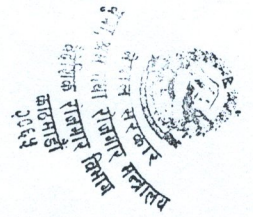 नेपाल सरकार
श्रम तथा रोजगार मन्त्रालय
वैदेशिक रोजगार विभाग
काठमाडौं
२०६५